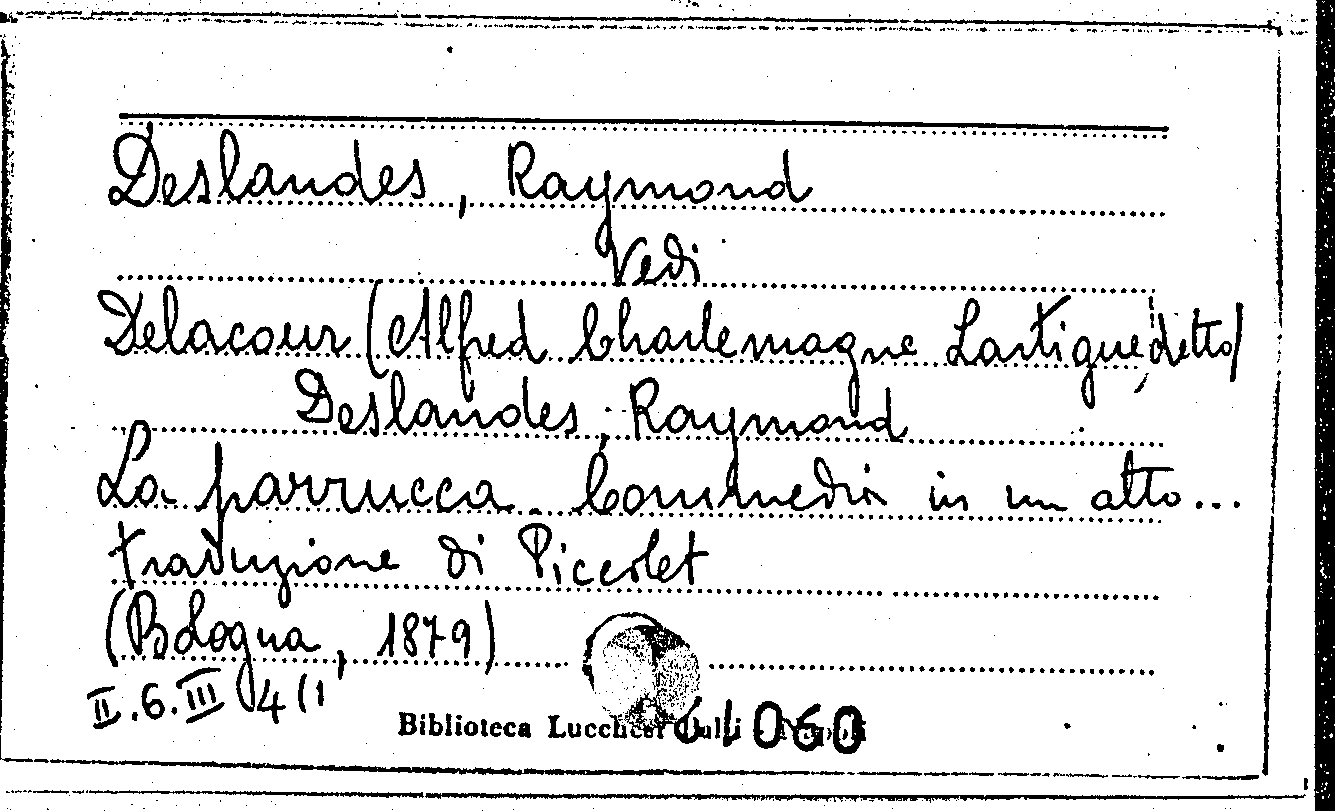 Deslandes, Raymond
Vedi
Delacour (Alfred Charlemagne Lartigue, detto)
Deslandes, Raymond
La parrucca. Commedia in un atto...
traduzione di Piccolet
(Bologna, 1879)
II.6.III 4(1
Biblioteca Lucchesi Palli Napoli
61060